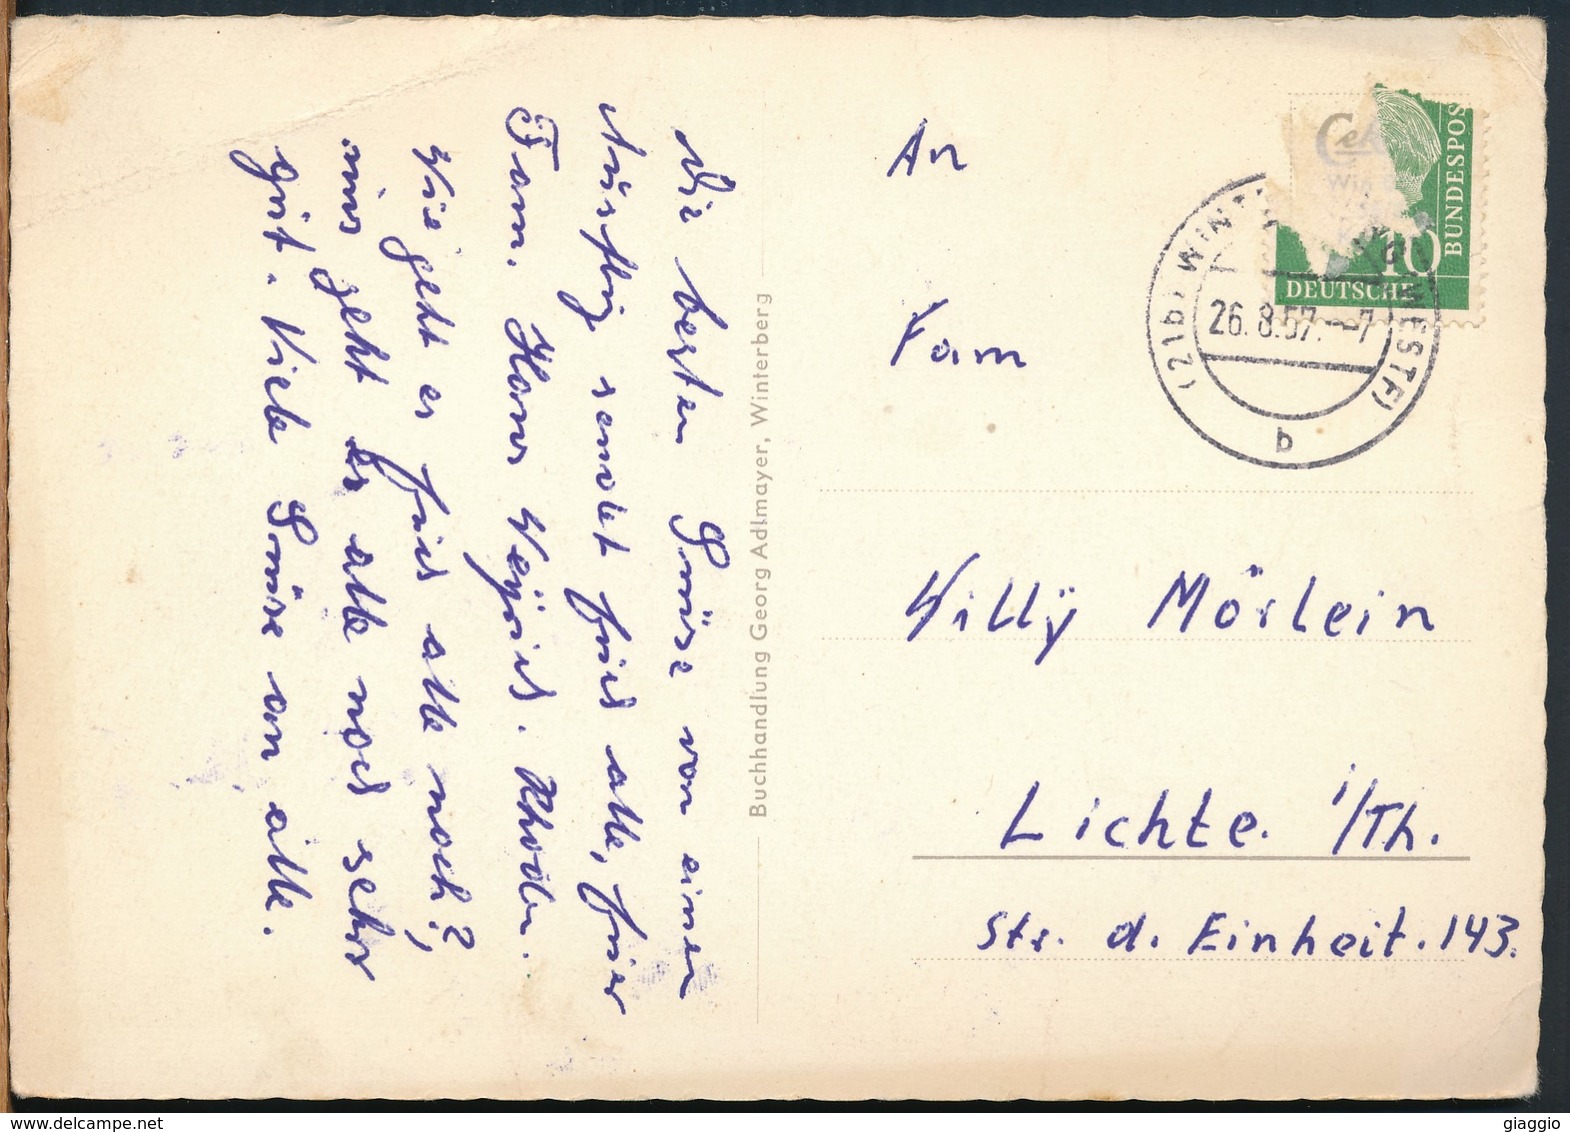 Die besten Grüse von einen
Ausflug sendet für alle, hier
Fam. Hans Weyrich. Rhoden.
Wie geht es für alle noch?,
uns geht es alle noch sehr
gut. Viele Grüse an alle.
Buchhandlung Georg Adlmayer, Winterberg
An
Fam
Willy Möslein
Lichte. i/Th.
Str. d. Einheit. 143.
10
DEUTSCHE
BUNDESPOS
(21b) WIN WESTF)
26.8.57.-7
b
giaggio